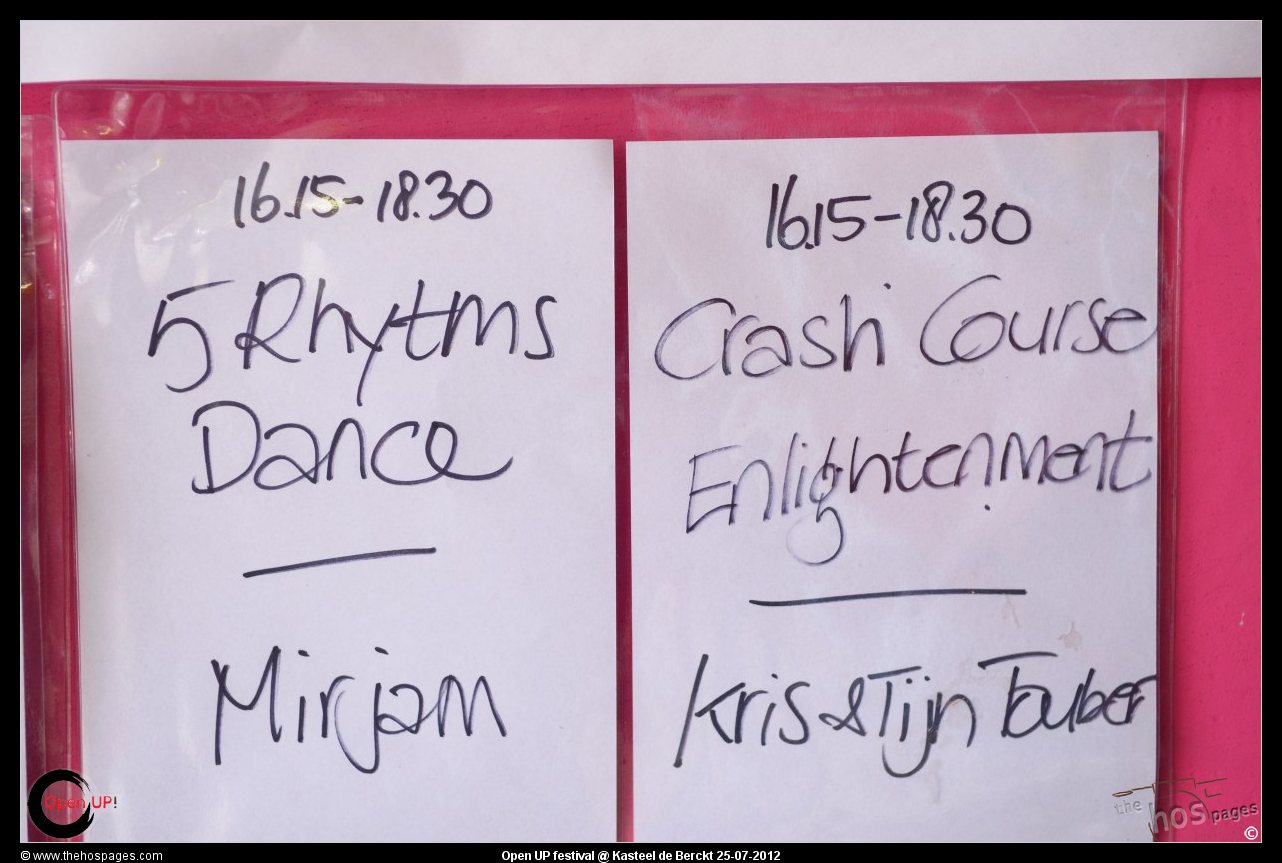 16.15-18.30
5 Rhytms
Dance
Mirjam
16.15-18.30
Crash Course
Enlightenment
Kris & Tijn Touber
Open UP!
the hos pages
©
© www.thehospages.com
Open UP festival @ Kasteel de Berckt 25-07-2012